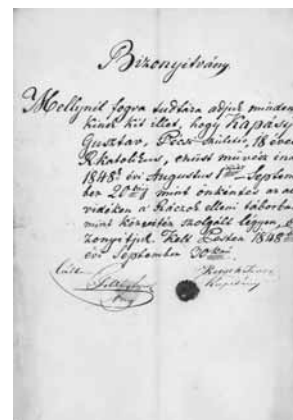 Bizonyitvány
Mellynél fogva tudtára adjuk minden
kinek kit illet, hogy Kapásy
Gusztáv, Pécs születés, 18 éves
R. katolikus, ezüst műves inas
1848ik évi Augustus 1ső Septem
ber 20káig mint önkéntes az al
vidéken a Ráczok elleni táborban
mint közvitéz szolgált legyen,
zonyitjuk. Kelt Pesten 1848ik
évi September 30kán
Látt.
Kapitány